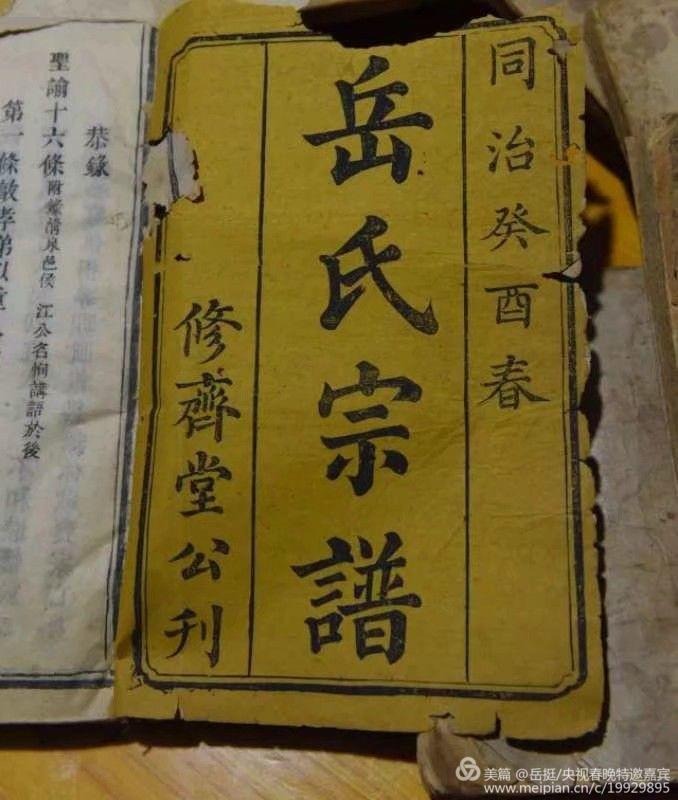 同治癸酉春
岳氏宗譜
修齊堂公刊
恭錄
聖諭十六條附
江公名恂講語於後
第一條敦孝弟以重
美篇 @岳挺/央视春晚特邀嘉宾
www.meipian.cn/c/19929895